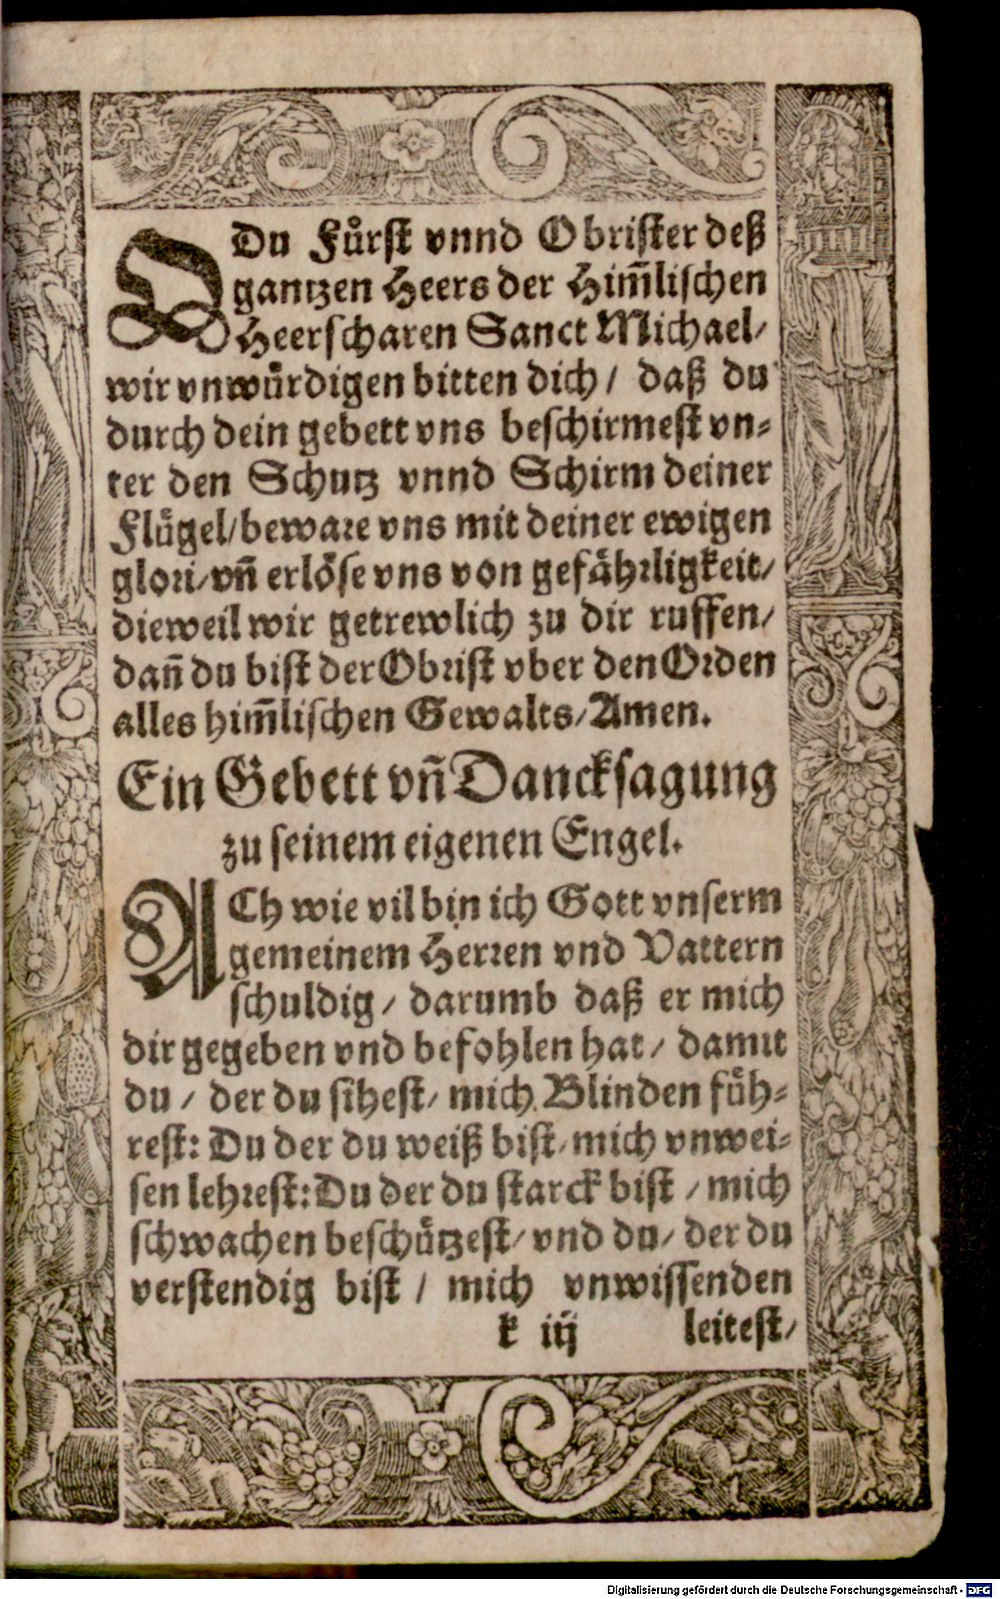 ODu Fůrst vnnd Obrister deß
gantzen Heers der Him̃lischen
Heerscharen Sanct Michael/
wir vnwůrdigen bitten dich/ daß du
durch dein gebett vns beschirmest vn⸗
ter den Schutz vnnd Schirm deiner
Flůgel/beware vns mit deiner ewigen
glori/vñ erlöse vns von gefåhrligkeit/
dieweil wir getrewlich zu dir ruffen/
dañ du bist der Obrist vber den Orden
alles him̃lischen Gewalts/Amen.
Ein Gebett vñ Dancksagung
zu seinem eigenen Engel.
ACh wie vil bin ich Gott vnserm
gemeinem Herren vnd Vattern
schuldig/ darumb daß er mich
dir gegeben vnd befohlen hat/ damit
du/ der du sihest/ mich Blinden fůh⸗
rest: Du der du weiß bist/mich vnwei⸗
sen lehrest:Du der du starck bist/mich
schwachen beschůtzest/vnd du/ der du
verstendig bist/ mich vnwissenden
k iij leitest/
Digitalisierung gefördert durch die Deutsche Forschungsgemeinschaft - DFG